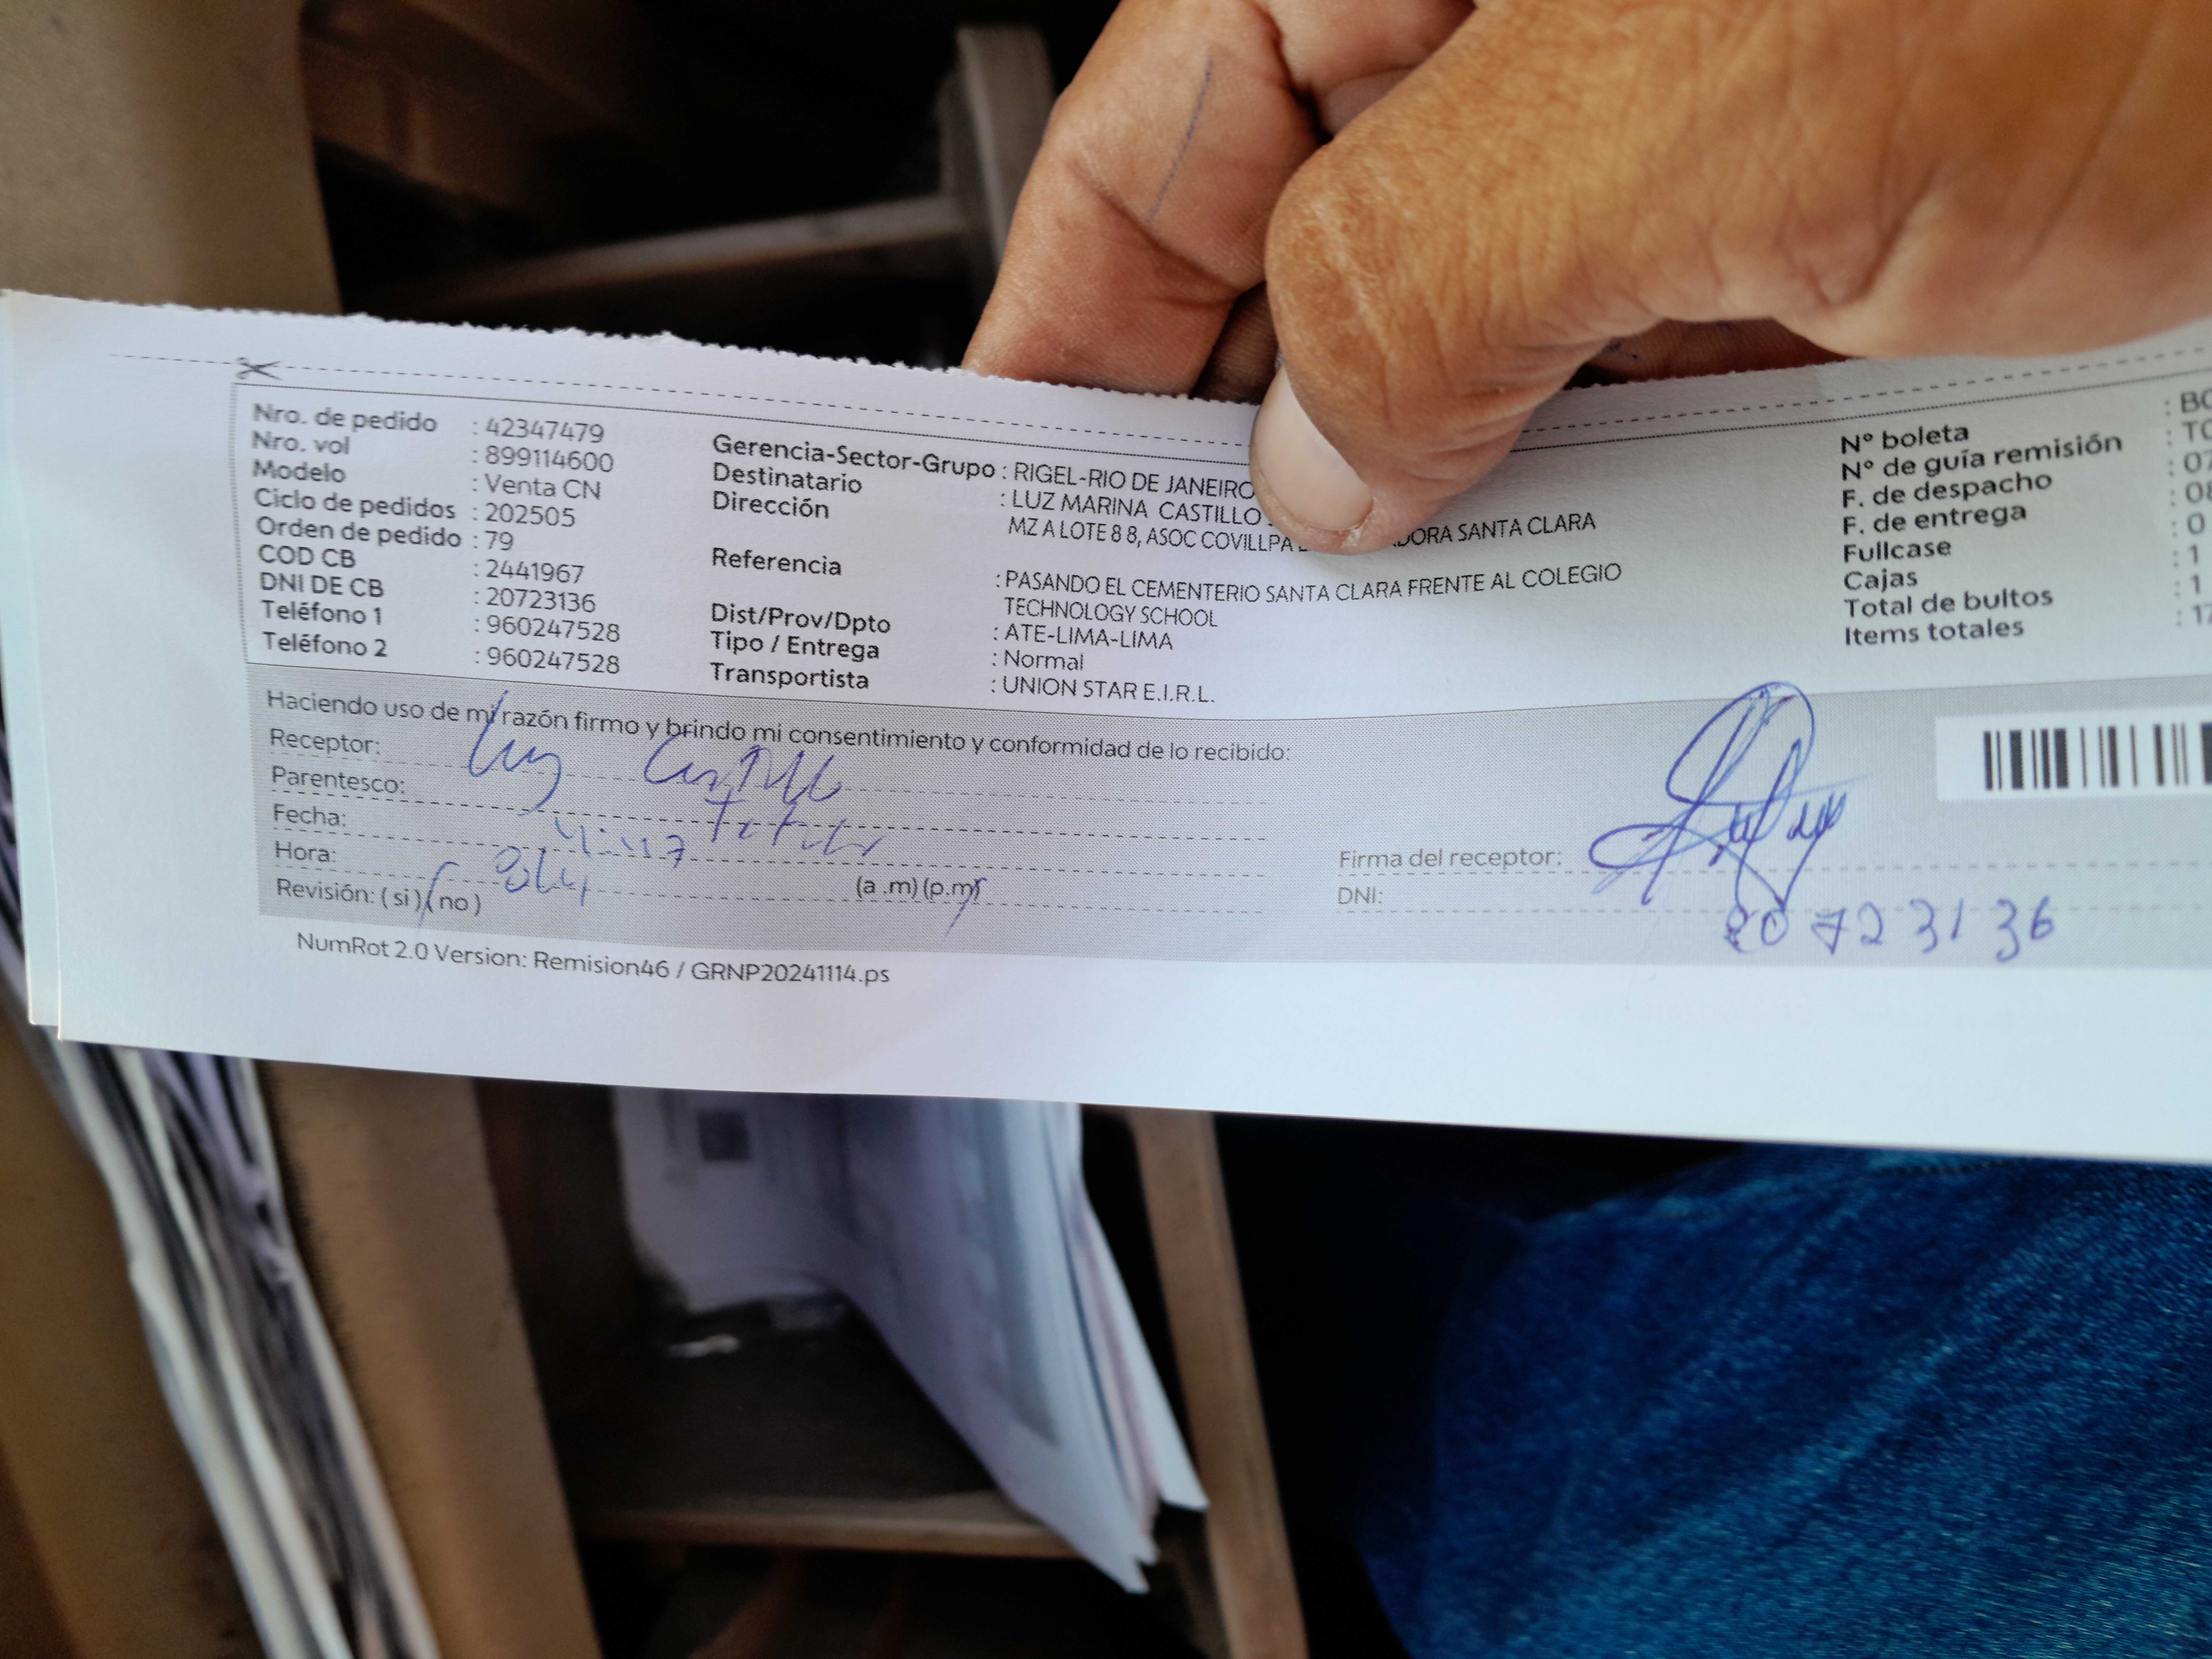 Nro. de pedido : 42347479
Nro. vol : 899114600
Modelo : Venta CN
Ciclo de pedidos : 202505
Orden de pedido : 79
COD CB : 2441967
DNI DE CB : 20723136
Teléfono 1 : 960247528
Teléfono 2 : 960247528
Gerencia-Sector-Grupo : RIGEL-RIO DE JANEIRO
Destinatario : LUZ MARINA CASTILLO
Dirección MZ A LOTE 8 8, ASOC COVILLPA SANTA CLARA
Referencia : PASANDO EL CEMENTERIO SANTA CLARA FRENTE AL COLEGIO
TECHNOLOGY SCHOOL
Dist/Prov/Dpto : ATE-LIMA-LIMA
Tipo / Entrega : Normal
Transportista : UNION STAR E.I.R.L.
N° boleta :
N° de guía remisión :
F. de despacho :
F. de entrega :
Fullcase :
Cajas : 1
Total de bultos : 1
Items totales :
Haciendo uso de mi razón firmo y brindo mi consentimiento y conformidad de lo recibido:
Receptor: Luz Castillo
Parentesco:
Fecha:
Hora: (a .m) (p.m)
Revisión: ( si ) ( no )
Firma del receptor:
DNI: 20723136
NumRot 2.0 Version: Remision46 / GRNP20241114.ps